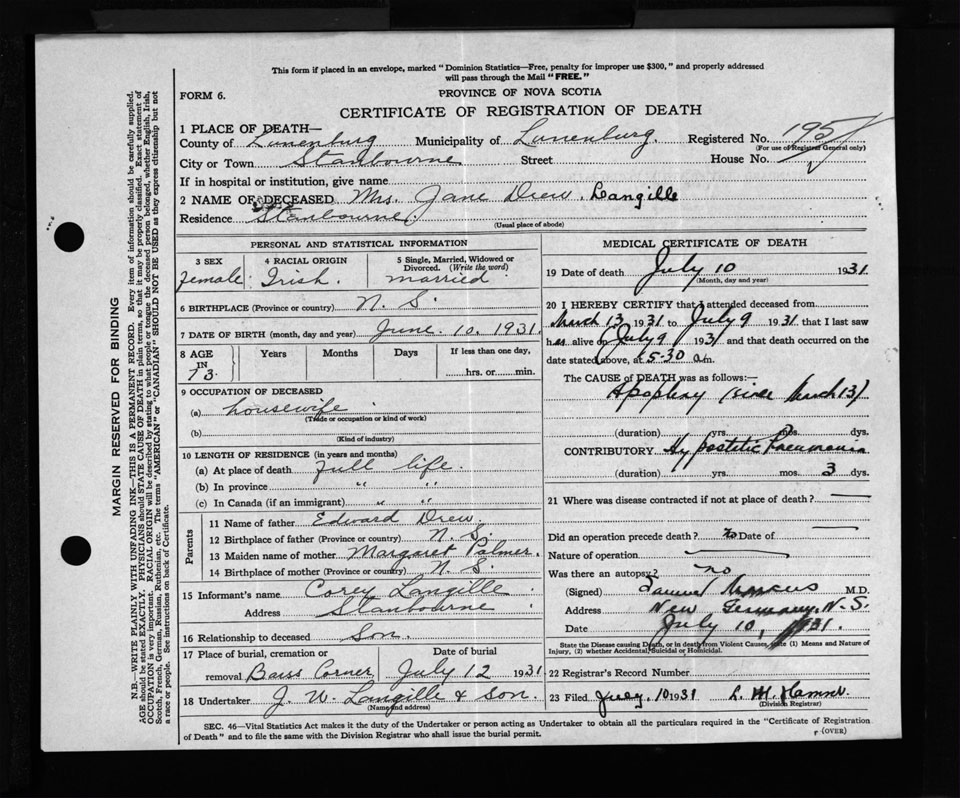 This form if placed in an envelope, marked "Dominion Statistics—Free, penalty for improper use $300," and properly addressed
will pass through the Mail "FREE."
FORM 6.
PROVINCE OF NOVA SCOTIA
CERTIFICATE OF REGISTRATION OF DEATH
MARGIN RESERVED FOR BINDING
N.B.—WRITE PLAINLY WITH UNFADING INK—THIS IS A PERMANENT RECORD. Every item of information should be carefully supplied.
AGE should be stated EXACTLY. PHYSICIANS should STATE CAUSE OF DEATH in plain terms, so that it may be properly classified. Exact statement of
OCCUPATION is very important. RACIAL ORIGIN will be described by stating to what people or tongue the deceased person belonged, whether English, Irish,
Scotch, French, German, Russian, Ruthenian, etc. The terms "AMERICAN" or "CANADIAN" SHOULD NOT BE USED as they express citizenship but not
a race or people. See instructions on back of Certificate.
1 PLACE OF DEATH—
County of Lunenburg Municipality of Lunenburg Registered No. 195
(For use of Registrar General only)
City or Town Stanbourne Street House No.
If in hospital or institution, give name
2 NAME OF DECEASED Mrs. Jane Drew Langille
Residence Stanbourne
(Usual place of abode)
PERSONAL AND STATISTICAL INFORMATION
3 SEX 4 RACIAL ORIGIN 5 Single, Married, Widowed or
Divorced. (Write the word)
female Irish. married
6 BIRTHPLACE (Province or country) N. S.
7 DATE OF BIRTH (month, day and year) June. 10. 1931.
8 AGE Years Months Days If less than one day,
IN
73. hrs. or min.
9 OCCUPATION OF DECEASED
(a) housewife
(Trade or occupation or kind of work)
(b)
(Kind of industry)
10 LENGTH OF RESIDENCE (in years and months)
(a) At place of death full life.
(b) In province " "
(c) In Canada (if an immigrant) " "
Parents
11 Name of father Edward Drew.
12 Birthplace of father (Province or country) N. S.
13 Maiden name of mother Margaret Palmer.
14 Birthplace of mother (Province or country) N. S.
15 Informant's name Corey Langille
Address Stanbourne
16 Relationship to deceased Son.
17 Place of burial, cremation or Date of burial
removal Barss Corner July 12 1931
18 Undertaker J. W. Langille & son.
(Name and address)
MEDICAL CERTIFICATE OF DEATH
19 Date of death July 10 1931.
(Month, day and year)
20 I HEREBY CERTIFY that I attended deceased from
March 13 1931 to July 9 1931 that I last saw
her alive on July 9 1931 and that death occurred on the
date stated above, at 5-30 a.m.
The CAUSE of DEATH was as follows:—
Apoplexy (since March 13)
(duration) yrs. mos. dys.
CONTRIBUTORY Hypostatic Pneumonia
(duration) yrs. mos. 3 dys.
21 Where was disease contracted if not at place of death?
Did an operation precede death? no Date of
Nature of operation
Was there an autopsy? no
(Signed) Samuel Marcus M.D.
Address New Germany, N. S.
Date July 10, 1931.
State the Disease causing Death, or in death from Violent Causes, state (1) Means and Nature of
Injury, (2) whether Accidental, Suicidal or Homicidal.
22 Registrar's Record Number
23 Filed July 10 1931
(Division Registrar)
SEC. 46—Vital Statistics Act makes it the duty of the Undertaker or person acting as Undertaker to obtain all the particulars required in the "Certificate of Registration
of Death" and to file the same with the Division Registrar who shall issue the burial permit.
(OVER)